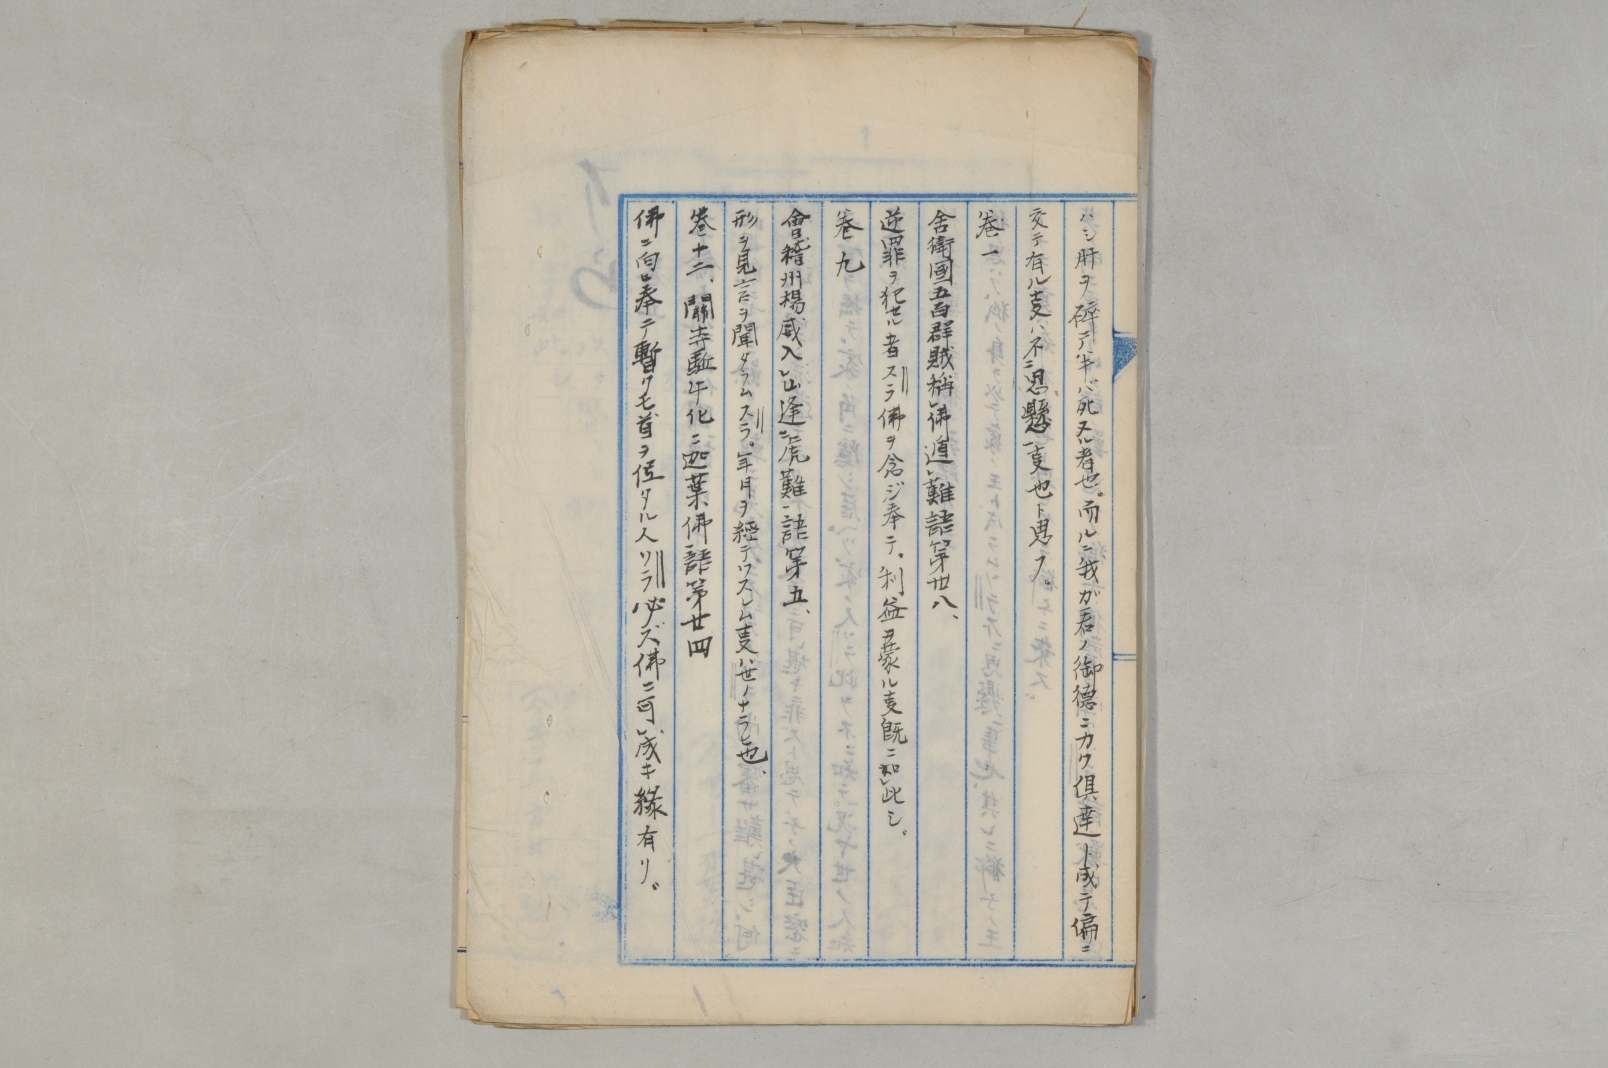 ハシ肝ヲ碎テ半バ死ヌル者也。而ルニ我ガ君ノ御徳ニカク倶達ト成テ偏ニ
交テ有ル叓ハ不ニ思懸一叓也ト思フ。
巻一
舎衛國五百群賊稱レ佛遁レ難語第廿八、
逆罪ヲ犯セル者スラ佛ヲ念ジ奉テ。利益ヲ蒙ル叓既ニ如レ此シ。
巻九
會稽州楊威入レ山逢ニ虎難一語第五、
形ヲ見言ヲ聞タラムスラ。年月ヲ經テワスレム叓ハ世ノナラヒ也、
巻十二、關寺駈牛化ニ迦葉佛一語第廿四
佛ニ向ヒ奉テ暫クモ首ヲ低タル人ソラ必ズ佛ニ可レ成キ縁有リ。